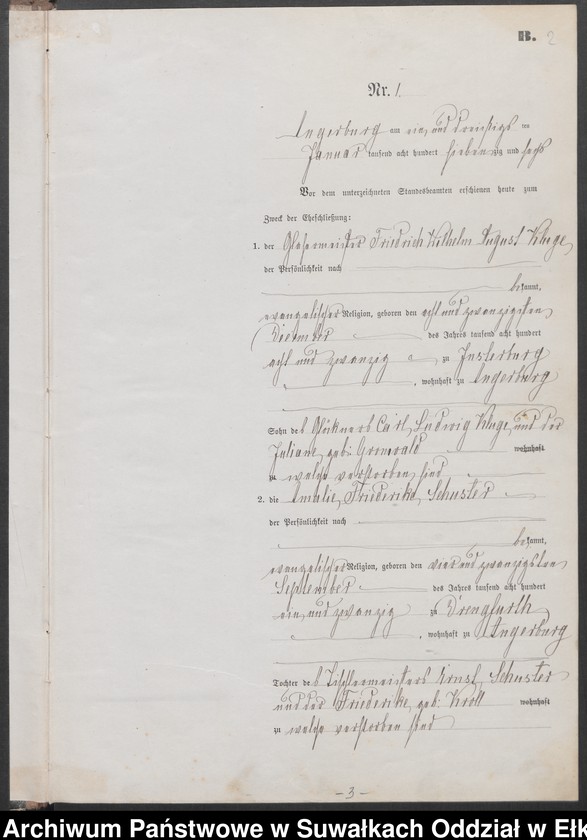 B. 2
Nr. 1.
Angerburg am ein und dreißigsten
Januar tausend acht hundert siebenzig und sechs
Vor dem unterzeichneten Standesbeamten erschienen heute zum
Zweck der Eheschließung:
1. der Glasermeister Friedrich Wilhelm August Kluge,
der Persönlichkeit nach
bekannt,
evangelischer Religion, geboren den acht und zwanzigsten
Dezember des Jahres tausend acht hundert
acht und zwanzig zu Insterburg
, wohnhaft zu Angerburg
Sohn des Glöckners Carl Ludwig Kluge, und der
Juliane, geb: Grunwald wohnhaft
zu welche verstorben sind
2. die Amalie, Friederike, Schuster
der Persönlichkeit nach
bekannt,
evangelischer Religion, geboren den vier und zwanzigsten
September des Jahres tausend acht hundert
ein und zwanzig zu Drengfurth
, wohnhaft zu Angerburg
Tochter des Tischlermeisters Ernst Schuster
und der Friederike, geb: Kroll wohnhaft
zu welche verstorben sind
-3-
Archiwum Państwowe w Suwałkach Oddział w Ełk